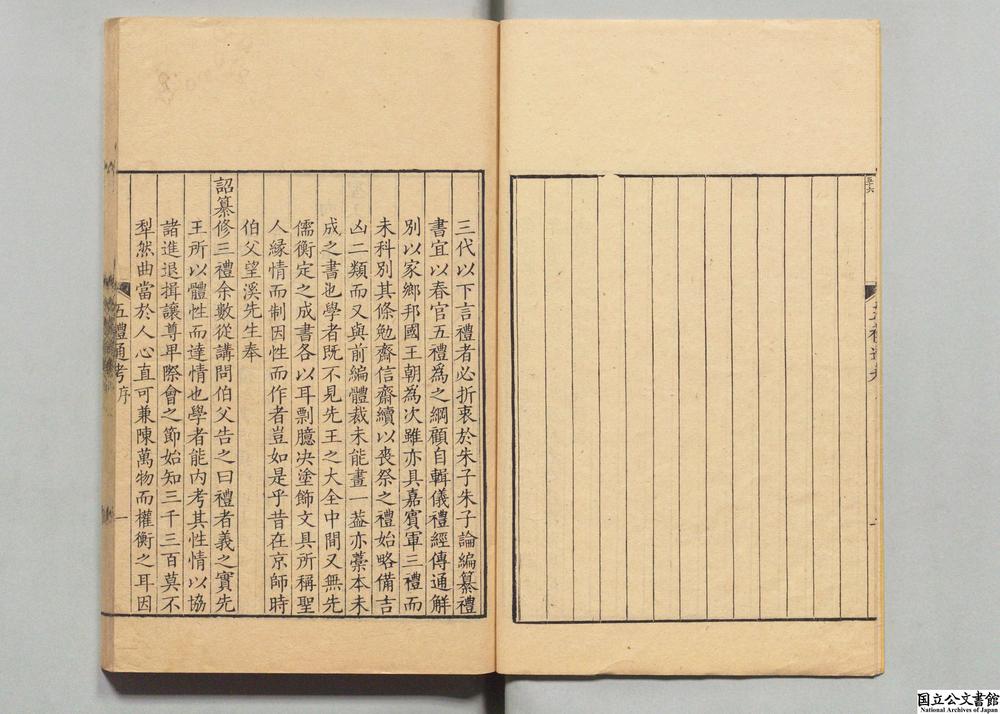 三代以下言禮者必折衷於朱子朱子論編纂禮
書宜以春官五禮為之綱顧自輯儀禮經傳通解
別以家鄉邦國王朝為次雖亦具嘉賓軍三禮而
未科別其條勉齋信齋續以喪祭之禮始略備吉
凶二類而又與前編體裁未能畫一葢亦藁本未
成之書也學者既不見先王之大全中間又無先
儒衡定之成書各以耳剽臆决塗飾文具所稱聖
人緣情而制因性而作者豈如是乎昔在京師時
伯父望溪先生奉
詔纂修三禮余數從講問伯父告之曰禮者義之實先
王所以體性而達情也學者能內考其性情以協
諸進退揖讓尊卑際會之節始知三千三百莫不
犁然曲當於人心直可兼陳萬物而權衡之耳因
五禮通考 序
一
国立公文書館
National Archives of Japan